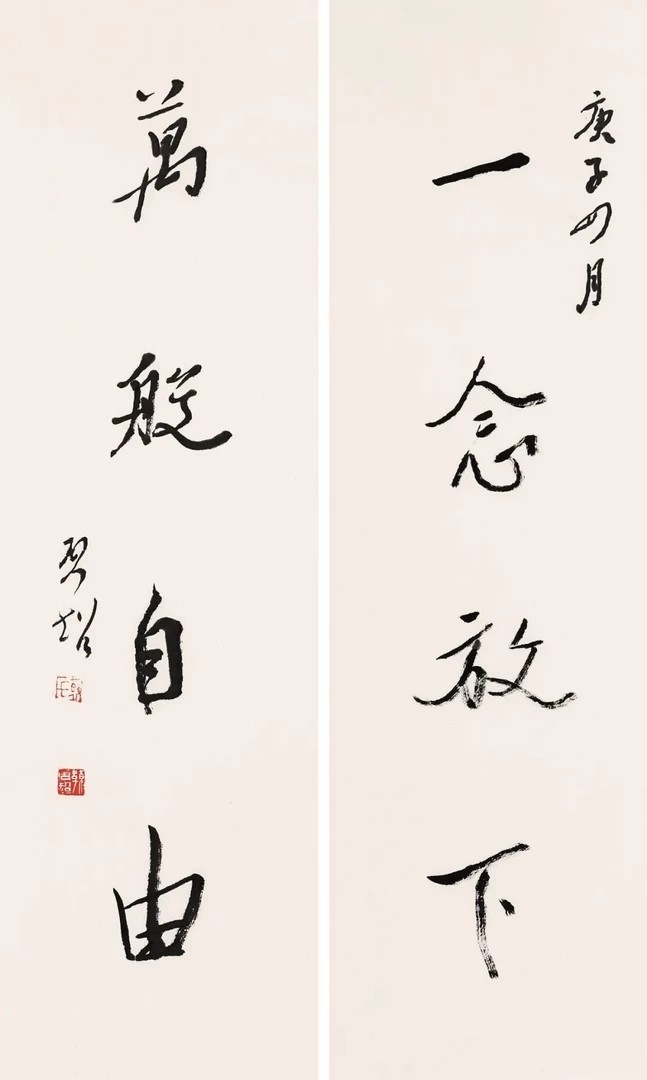 庚子四月
一念放下
萬般自由